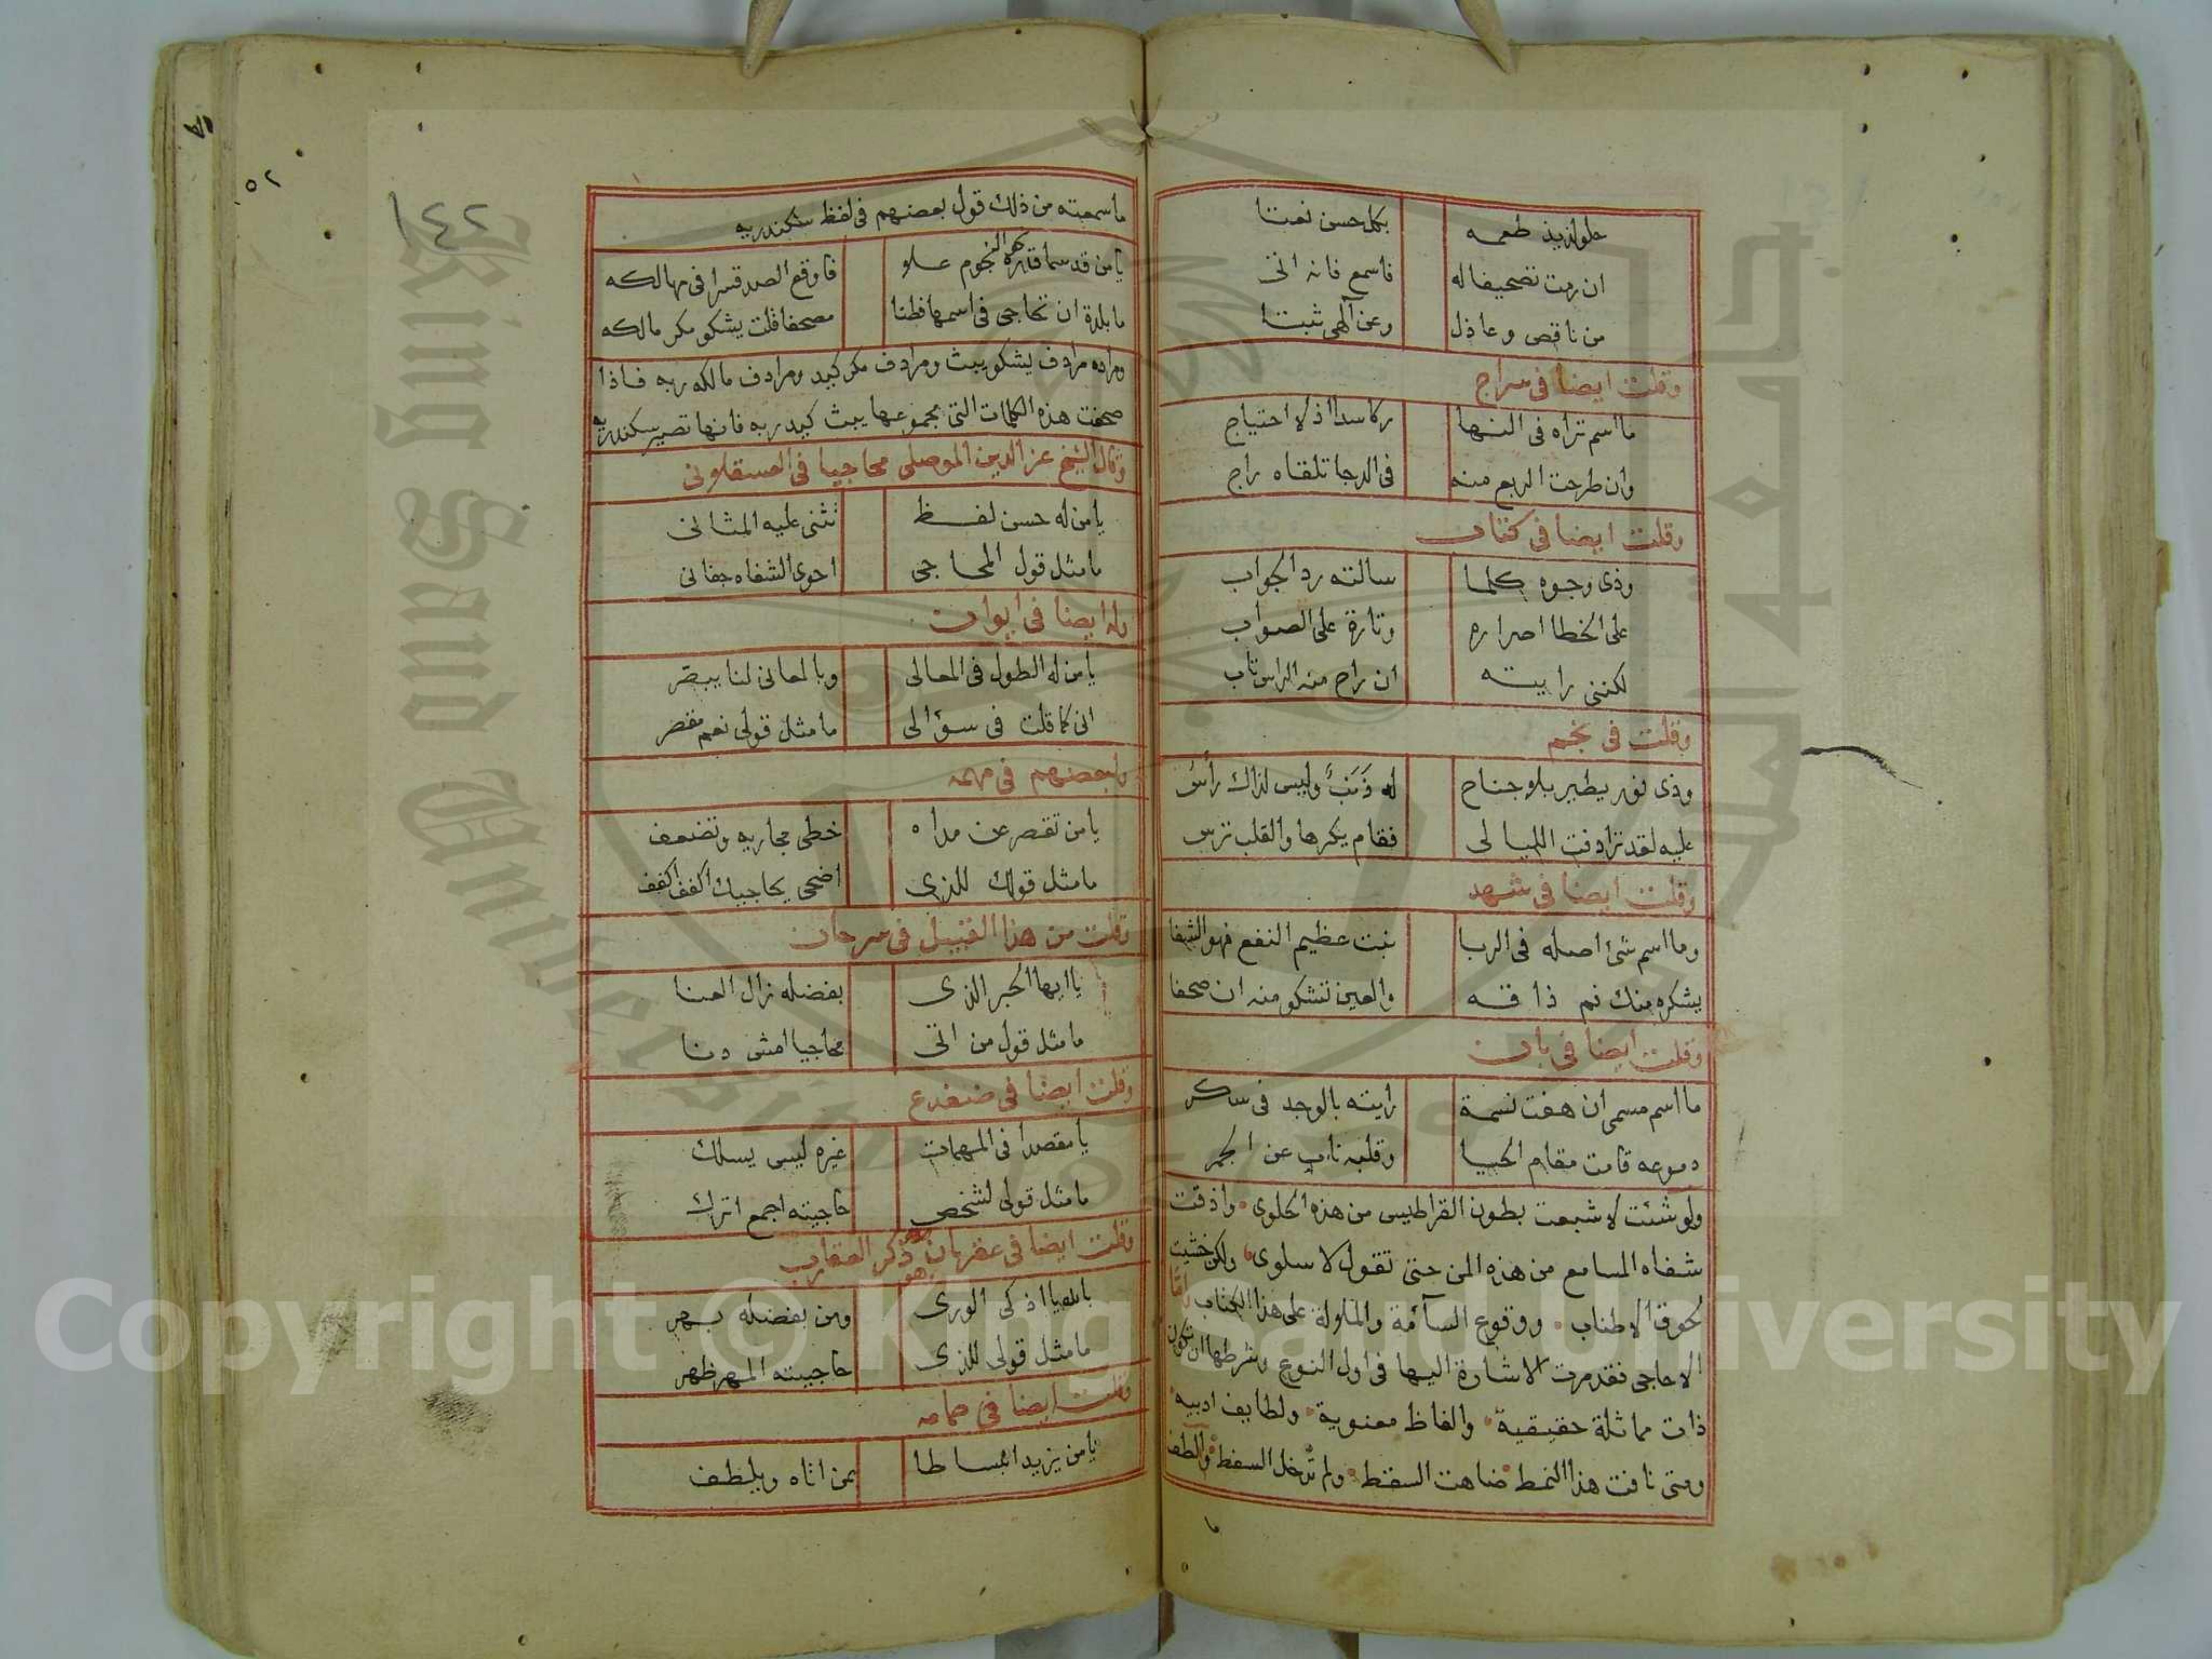 حلو لذيذ طعمه بكل حسن نعتا
ان رمت تصحيفا له فاسمع فانه اتى
من ناقص وعاذل وعن آلهى ثبتا
وقلت ايضا فى سراج
ما اسم تراه فى النها ركاسدا اذ لا احتياج
وان طرحت الربع منه فى الدجا تلقاه راج
وقلت ايضا فى
وذى وجوه كلما سالته رد الجواب
على الخطا اصراره وتارة على الصواب
لكننى رايته ان راح منه الراس تاب
وقلت فى نجم
وذى نور يطير بلا جناح له ذنب وليس لذاك رأس
عليه لقد ترادفت الليالى فقام يكرها والقلب ترس
وقلت ايضا فى شهد
وما اسم شئ اصله فى الربا نبت عظيم النفع فهو الشفا
يشكره منك فم ذاقه والعين تشكو منه ان صحفا
وقلت ايضا فى بان
ما اسم مسمى ان هفت نسمة رايته بالوجد فى ساكر
دموعه قامت مقام الحيا وقلبه ناب عن الجمر
ولو شئت لاشبعت بطون القراطيس من هذه الحلوى واذقت
شفاه المسامع من هذه المن حتى تقول لا سلوى ولكن خشيت
لحوق الاطناب ووقوع السآمة والملولة على هذا الكتاب واما
الاحاجى فقد مرت الاشارة اليها فى اول النوع وشرطها ان تكون
ذات مماثلة حقيقية والفاظ معنوية ولطايف ادبيه
ومتى نافت هذا النمط ضاهت السقط ولم تدخل السفط والطف
٥٢
١٤٢
ما سمعته من ذلك قول بعضهم فى لفظ سكندريه
يا من قد سما قدره النجوم علو فاوقع الصد قسرا فى مهالكه
ما بلدة ان تحاجى فى اسمها فطنا مصحفا قلت يشكو مكر مالكه
ومراده مرادف يشكو يبث ومرادف مكر كيد ومرادف مالكه ربه فاذا
صحفت هذه الكلمات التى مجموعها يبث كيد ربه فانها تصير سكندريه
وقال الشيخ عز الدين الموصلى محاجيا فى العسقلانى
يا من له حسن لفظ تثنى عليه المثانى
ما مثل قول المحاجى احوى الشفاه جفانى
وله ايضا فى ايوان
يا من له الطول فى المعالى وبالمعانى لنا يبصر
انى كما قلت فى سؤالى ما مثل قولى نعم مقصر
ولبعضهم فى مهمه
يا من تقصر عن مداه خطى مجاريه وتضعف
ما مثل قولك للذى اضحى يحاجيك اكفف اكفف
وقلت من هذا القبيل فى سرحان
يا ايها الحبر الذى بفضله زال العنا
ما مثل قول من اتى محاجيا امشى دنا
وقلت ايضا فى ضفدع
يا مقصدا فى المهمات غيره ليس يسلك
ما مثل قولى لشخص حاجيته اجمع اترك
وقلت ايضا فى عقربان هو ذكر العقارب
بالله يا اذكى الورى ومن بفضله بهر
ما مثل قولى للذى حاجيته المهر ظهر
وقلت ايضا فى حمامه
يا من يزيد انبساطا بمن اتاه ويلطف
Copyright © King Saud University
King Saud University
جامعة الملك سعود